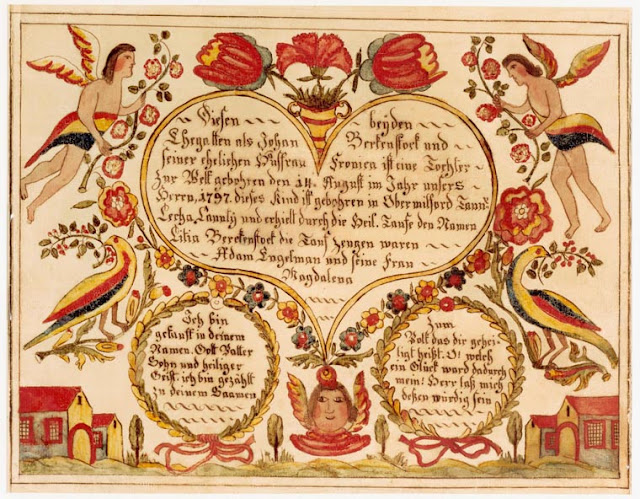 Diesen beyden
Ehegatten als Johan Berkenstock und
seiner ehelichen Hussrau Fronica ist eine Tochter
Zur Welt gebohren den 14. August im Jahr unsers
Herrn, 1797. dieses Kind ist gebohren in Obermilford Taun.
Lecha, Caunty und erhielt durch die Heil. Taufe den Namen
Berckenstock die Tauf Zeugen waren
Adam Engelman und seine Frau
Magdalena
Ich bin
getauft in deinem
Namen. Gott Vatter
Sohn und heiliger
Geist. ich bin gezählt
zu deinem Saamen
Zum
Volk das dir gehei-
ligt heißt. O! welch
ein Glück ward dadurch
mein! Herr laß mich
deßen würdig sein